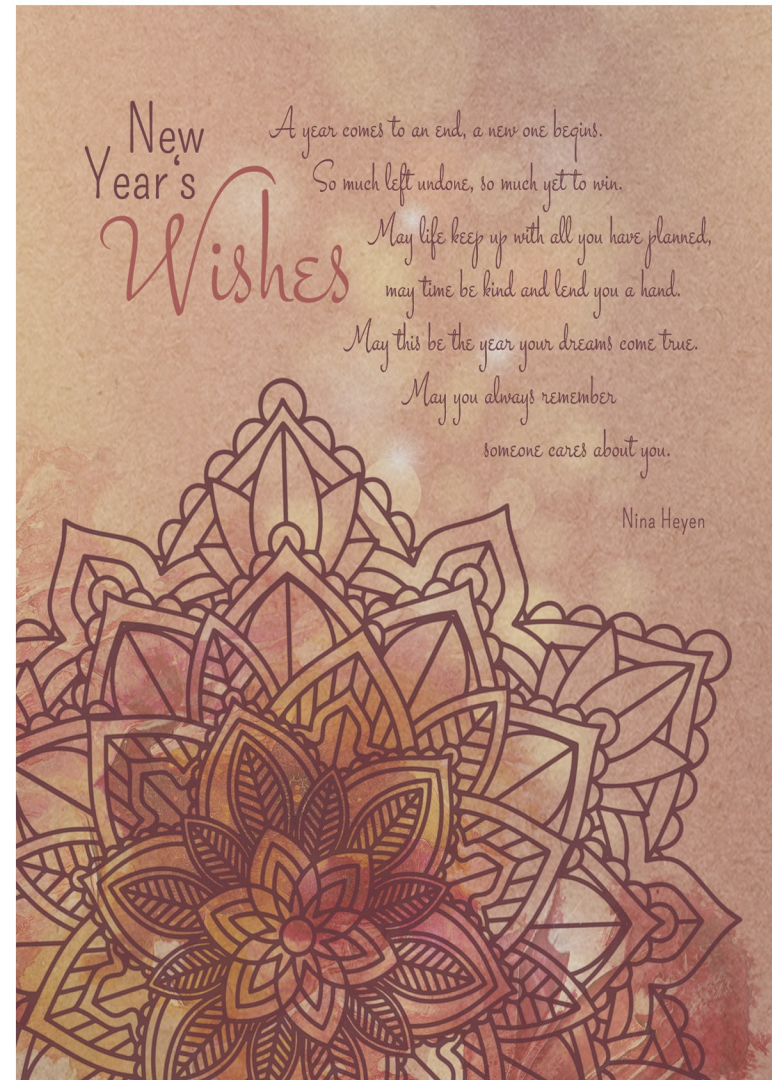 New
Year's
Wishes
A year comes to an end, a new one begins.
So much left undone, so much yet to win.
May life keep up with all you have planned,
may time be kind and lend you a hand.
May this be the year your dreams come true.
May you always remember
someone cares about you.
Nina Heyen